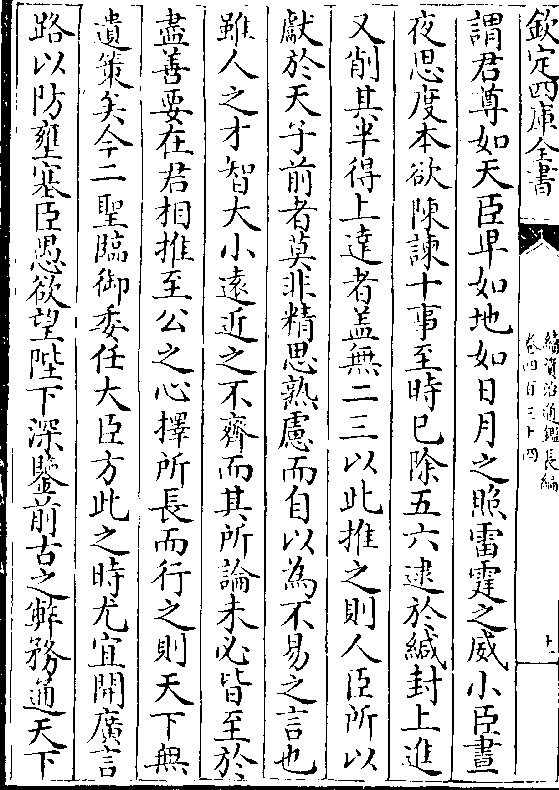 欽定四庫全書
續資治通鑑長編
卷四百三十四
十一
謂君尊如天臣卑如地如日月之照雷霆之威小臣晝
夜思度本欲陳諫十事至時已除五六逮於緘封上進
又削其半得上達者蓋無二三以此推之則人臣所以
獻於天子前者莫非精思熟慮而自以為不易之言也
雖人之才智大小遠近之不齊而其所論未必皆至於
盡善要在君相推至公之心擇所長而行之則天下無
遺策矣今二聖臨御委任大臣方此之時尤宜開廣言
路以防壅塞臣愚欲望陛下深鑒前古之弊務通天下